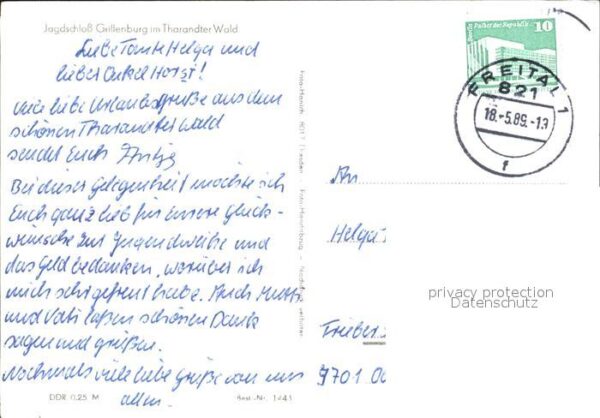 Jagdschloß Grillenburg im Tharandter Wald
Liebe Tante Helga und
lieber Onkel Horst!
viele liebe Urlaubsgrüße aus dem
schönen Tharandter Wald
sendet Euch Antje
Bei dieser Gelegenheit möchte ich
Euch ganz lieb für eure Glück-
wünsche zur Jugendweihe und
das Geld bedanken, worüber ich
mich sehr gefreut habe. Auch Mutti
und Vati laßen schönen Dank
sagen und grüßen.
Nochmals viele liebe Grüße von uns
allen.
DDR 0,25 M
Best.-Nr. 1441
Foto-Handrick
Berlin Palast der Republik 10
FREITAL 1
821
18.-5.89.-13
f
An
Helga
privacy protection
Datenschutz
Freiber
9701